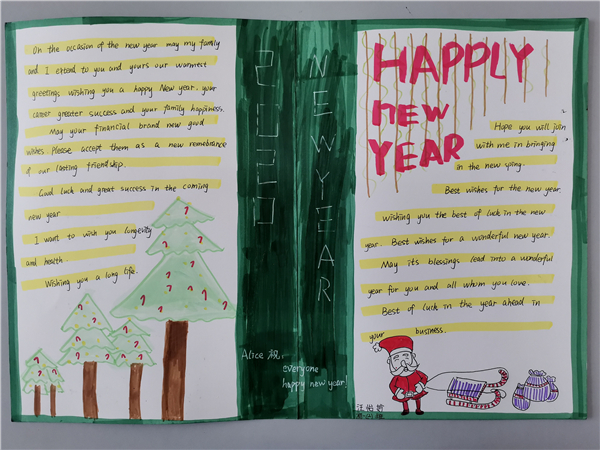 On the occasion of the new year may my family
and I extend to you and yours our warmest
greetings, wishing you a happy New year, your
career greater success and your family happiness.
May your financial brand new good
wishes. Please accept them as a new remebrance
of our lasting friendship.
Good luck and great success in the coming
new year
I want to wish you longevity
and health.
Wishing you a long life.
2020
NEW YEAR
Alice 祝:
everyone
happy new year!
HAPPLY
new
YEAR
Hope you will join
with me in bringing
in the new sping.
Best wishes for the new year.
wishing you the best of luck in the new
year. Best wishes for a wonderful new year.
May its blessings lead into a wonderful
year for you and all whom you love.
Best of luck in the year ahead in
your business.